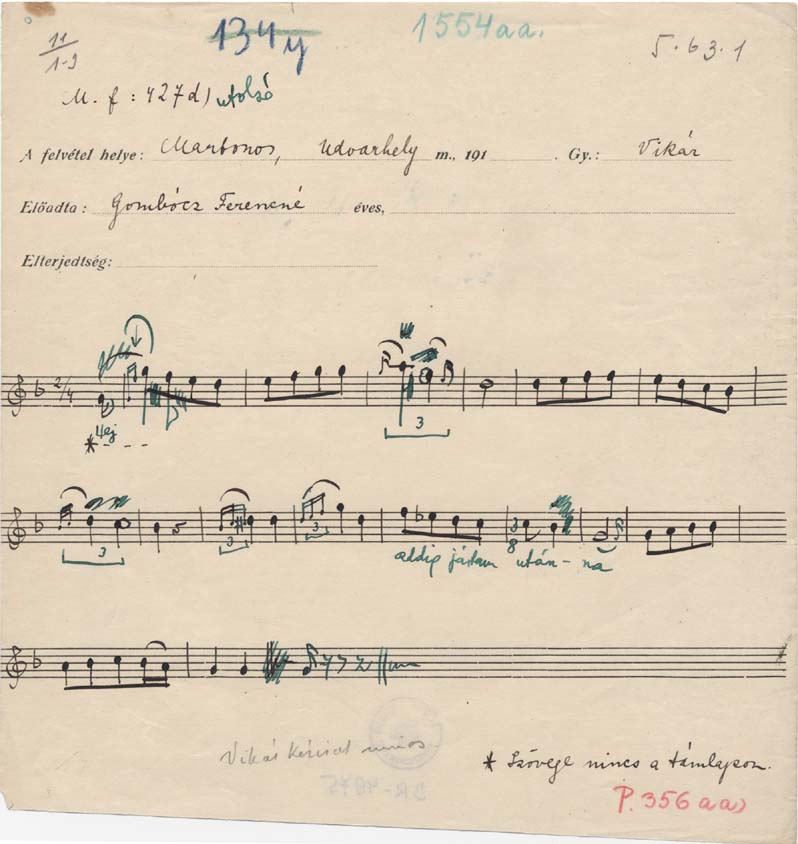 134y 1554aa.
11/1-9 5.63.1
M. f: 427d) utolsó
A felvétel helye: Marbonos, Udvarhely m., 191 . Gy.: Vikár
Előadta: Gombócz Ferencné éves,
Elterjedtség:
2/4
3
*
3 3 3 3/8
addig jártam után-na
Vikár nincs.
* Szövege nincs a támlapon.
P. 356aa)